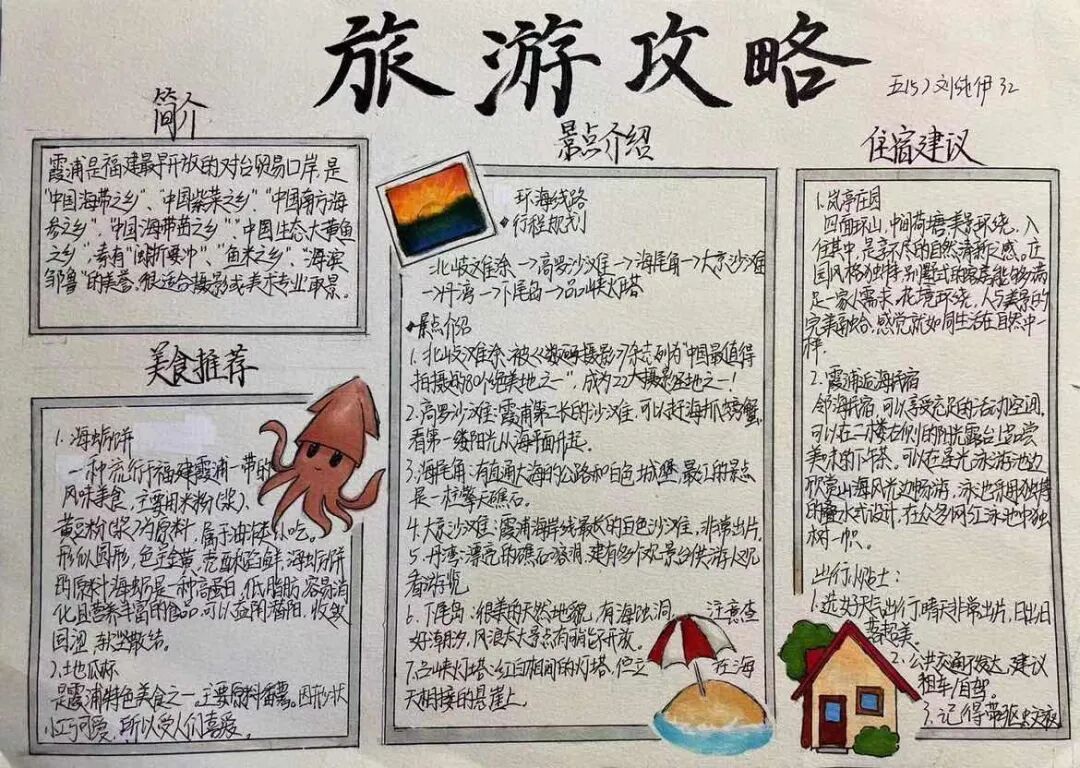 旅游攻略
五(5)刘 伊 32
简介
霞浦是福建最早开放的对台贸易口岸,是
"中国海带之乡"、"中国紫菜之乡""中国南方海
参之乡"、"中国海带苗之乡""中国生态大黄鱼
之乡",素有"闽浙要冲"、"鱼米之乡"、"海滨
邹鲁"的美誉。很适合摄影或美术专业取景。
美食推荐
1. 海蛎饼
一种流行于福建霞浦一带的
风味美食,主要用米粉(浆)、
黄豆粉(浆)为原料,属于油炸类小吃。
形似圆形,色泽金黄,壳酥馅鲜,海蛎饼
的原料海蛎是一种高蛋白,低脂肪,容易消
化且营养丰富的食品,可以益阴潜阳,收敛
固涩,软坚散结。
2.土地瓜杯
是霞浦特色美食之一。主要原料番薯。因形状
小巧可爱,所以受人们喜爱。
景点介绍
环海线路
行程规划
北岐滩涂→高罗沙滩→海尾角→大京沙滩
→丹湾→下尾岛→吕峡灯塔
景点介绍
1.北岐滩涂:被《数码摄影》杂志列为"中国最值得
拍摄的80个绝美地之一",成为22大摄影圣地之一!
2.高罗沙滩:霞浦第二长的沙滩,可以赶海抓螃蟹,
看第一缕阳光从海平面升起。
3.海尾角:有直通大海的公路和白色城堡,最红的景点
是一柱擎天礁石。
4.大京沙滩:霞浦海岸线最长的白色沙滩,非常出片。
5.丹湾:漂亮的礁石溶洞,建有多个观景台供游人观
看游览
6.下尾岛:很美的天然地貌,有海蚀洞, 注意查
好潮汐,风浪太大景点有可能不开放。
7.吕峡灯塔:红白相间的灯塔,伫立 在海
天相接的悬崖上。
住宿建议
1.岚亭庄园
四面环山,中间荷塘美景环绕。入
住其中,是享不尽的自然清新之感。庄
园风格独特,别墅式的客房能够满
足一家人需求,花境环绕,人与美景的
完美融合,感觉就如同生活在自然中一
样.
2.霞浦近海民宿
邻海民宿,可以享受充足的活动空间,
可以在二楼右侧的阳光露台上品尝
美味的下午茶。可以在星光泳游池边
欣赏山海风光边畅游,泳池采用独特
的叠水式设计,在众多网红泳池中独
树一帜。
出行小贴士:
1.选好天气出行,晴天非常出片,日出日
落超美。
2.公共交通不发达,建议
租车/自驾。
3.记得带驱蚊液